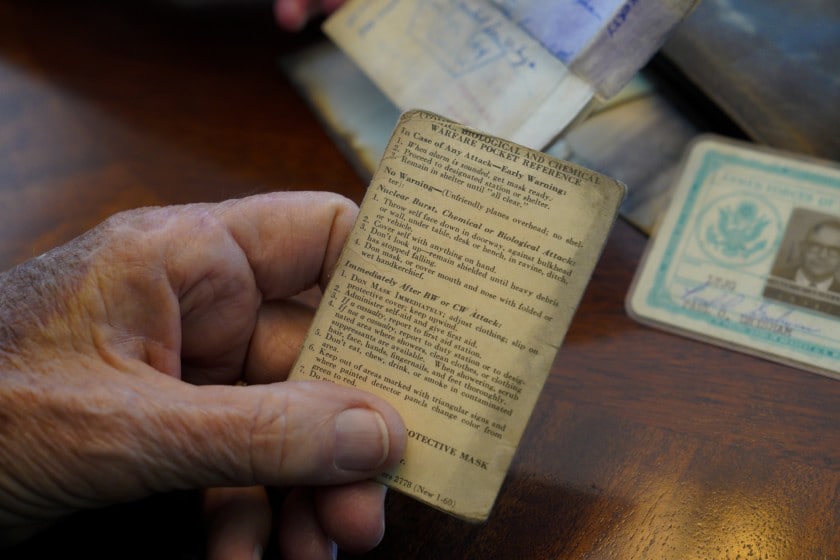 BIOLOGICAL AND CHEMICAL
WARFARE POCKET REFERENCE
In Case of Any Attack—Early Warning:
1. When alarm is sounded, get mask ready.
2. Proceed to designated station or shelter.
3. Remain in shelter until "all clear."
No Warning—(Unfriendly planes overhead; no shel-
ter):
Nuclear Burst, Chemical or Biological Attack:
1. Throw self face down in doorway, against bulkhead
or wall, under table, desk or bench, in ravine, ditch,
or vehicle.
2. Cover self with anything on hand.
3. Don't look up—remain shielded until heavy debris
has stopped falling.
4. Don mask, or cover mouth and nose with folded or
wet handkerchief.
Immediately After BW or CW Attack:
1. DON MASK IMMEDIATELY; adjust clothing; slip on
protective cover; keep upwind.
2. Administer self-aid and give first aid.
3. If a casualty, report to aid station.
4. If not a casualty, report to duty station or to desig-
nated area where showers, clean clothes, or clothing
replacements are available. When showering, scrub
hair, face, hands, fingernails, and feet thoroughly.
5. Don't eat, chew, drink, or smoke in contaminated
area.
6. Keep out of areas marked with triangular signs and
where painted detector panels change color from
green to red.
7. Do
PROTECTIVE MASK
2778 (New 1-60)